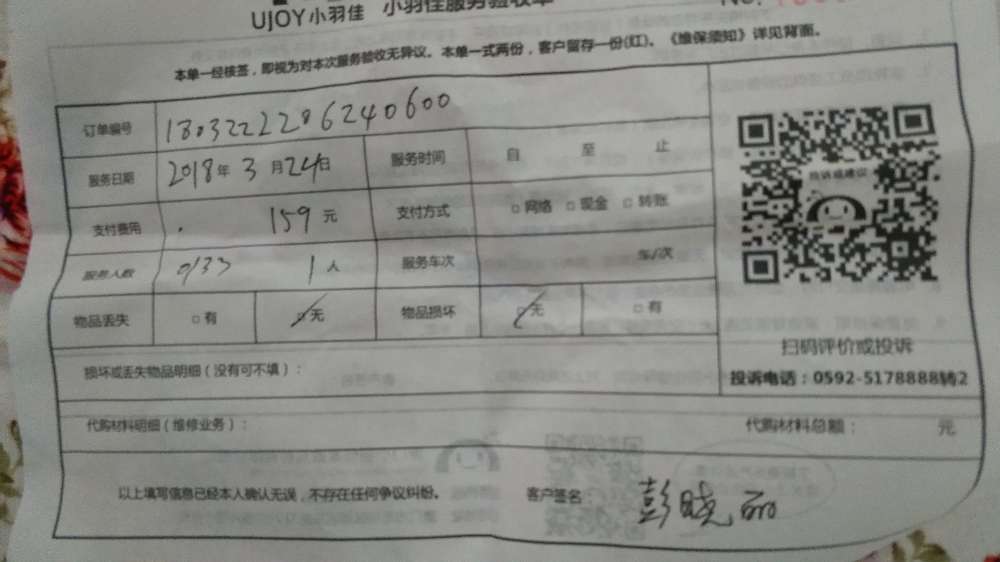 UJOY小羽佳 小羽佳服务验收单 No.
本单一经核签，即视为对本次服务验收无异议。本单一式两份，客户留存一份(红)。《维保须知》详见背面。
订单编号 1803222206240600
服务日期 2018年3月24日 服务时间 自 至 止
支付费用 159元 支付方式 □网络 □现金 □转账
服务人数 0133 1人 服务车次 车/次
物品丢失 □有 □无 物品损坏 □无 □有
投诉或建议
扫码评价或投诉
投诉电话：0592-5178888转2
损坏或丢失物品明细（没有可不填）：
代购材料明细（维修业务）： 代购材料总额： 元
以上填写信息已经本人确认无误，不存在任何争议纠纷。 客户签名： 彭晓丽